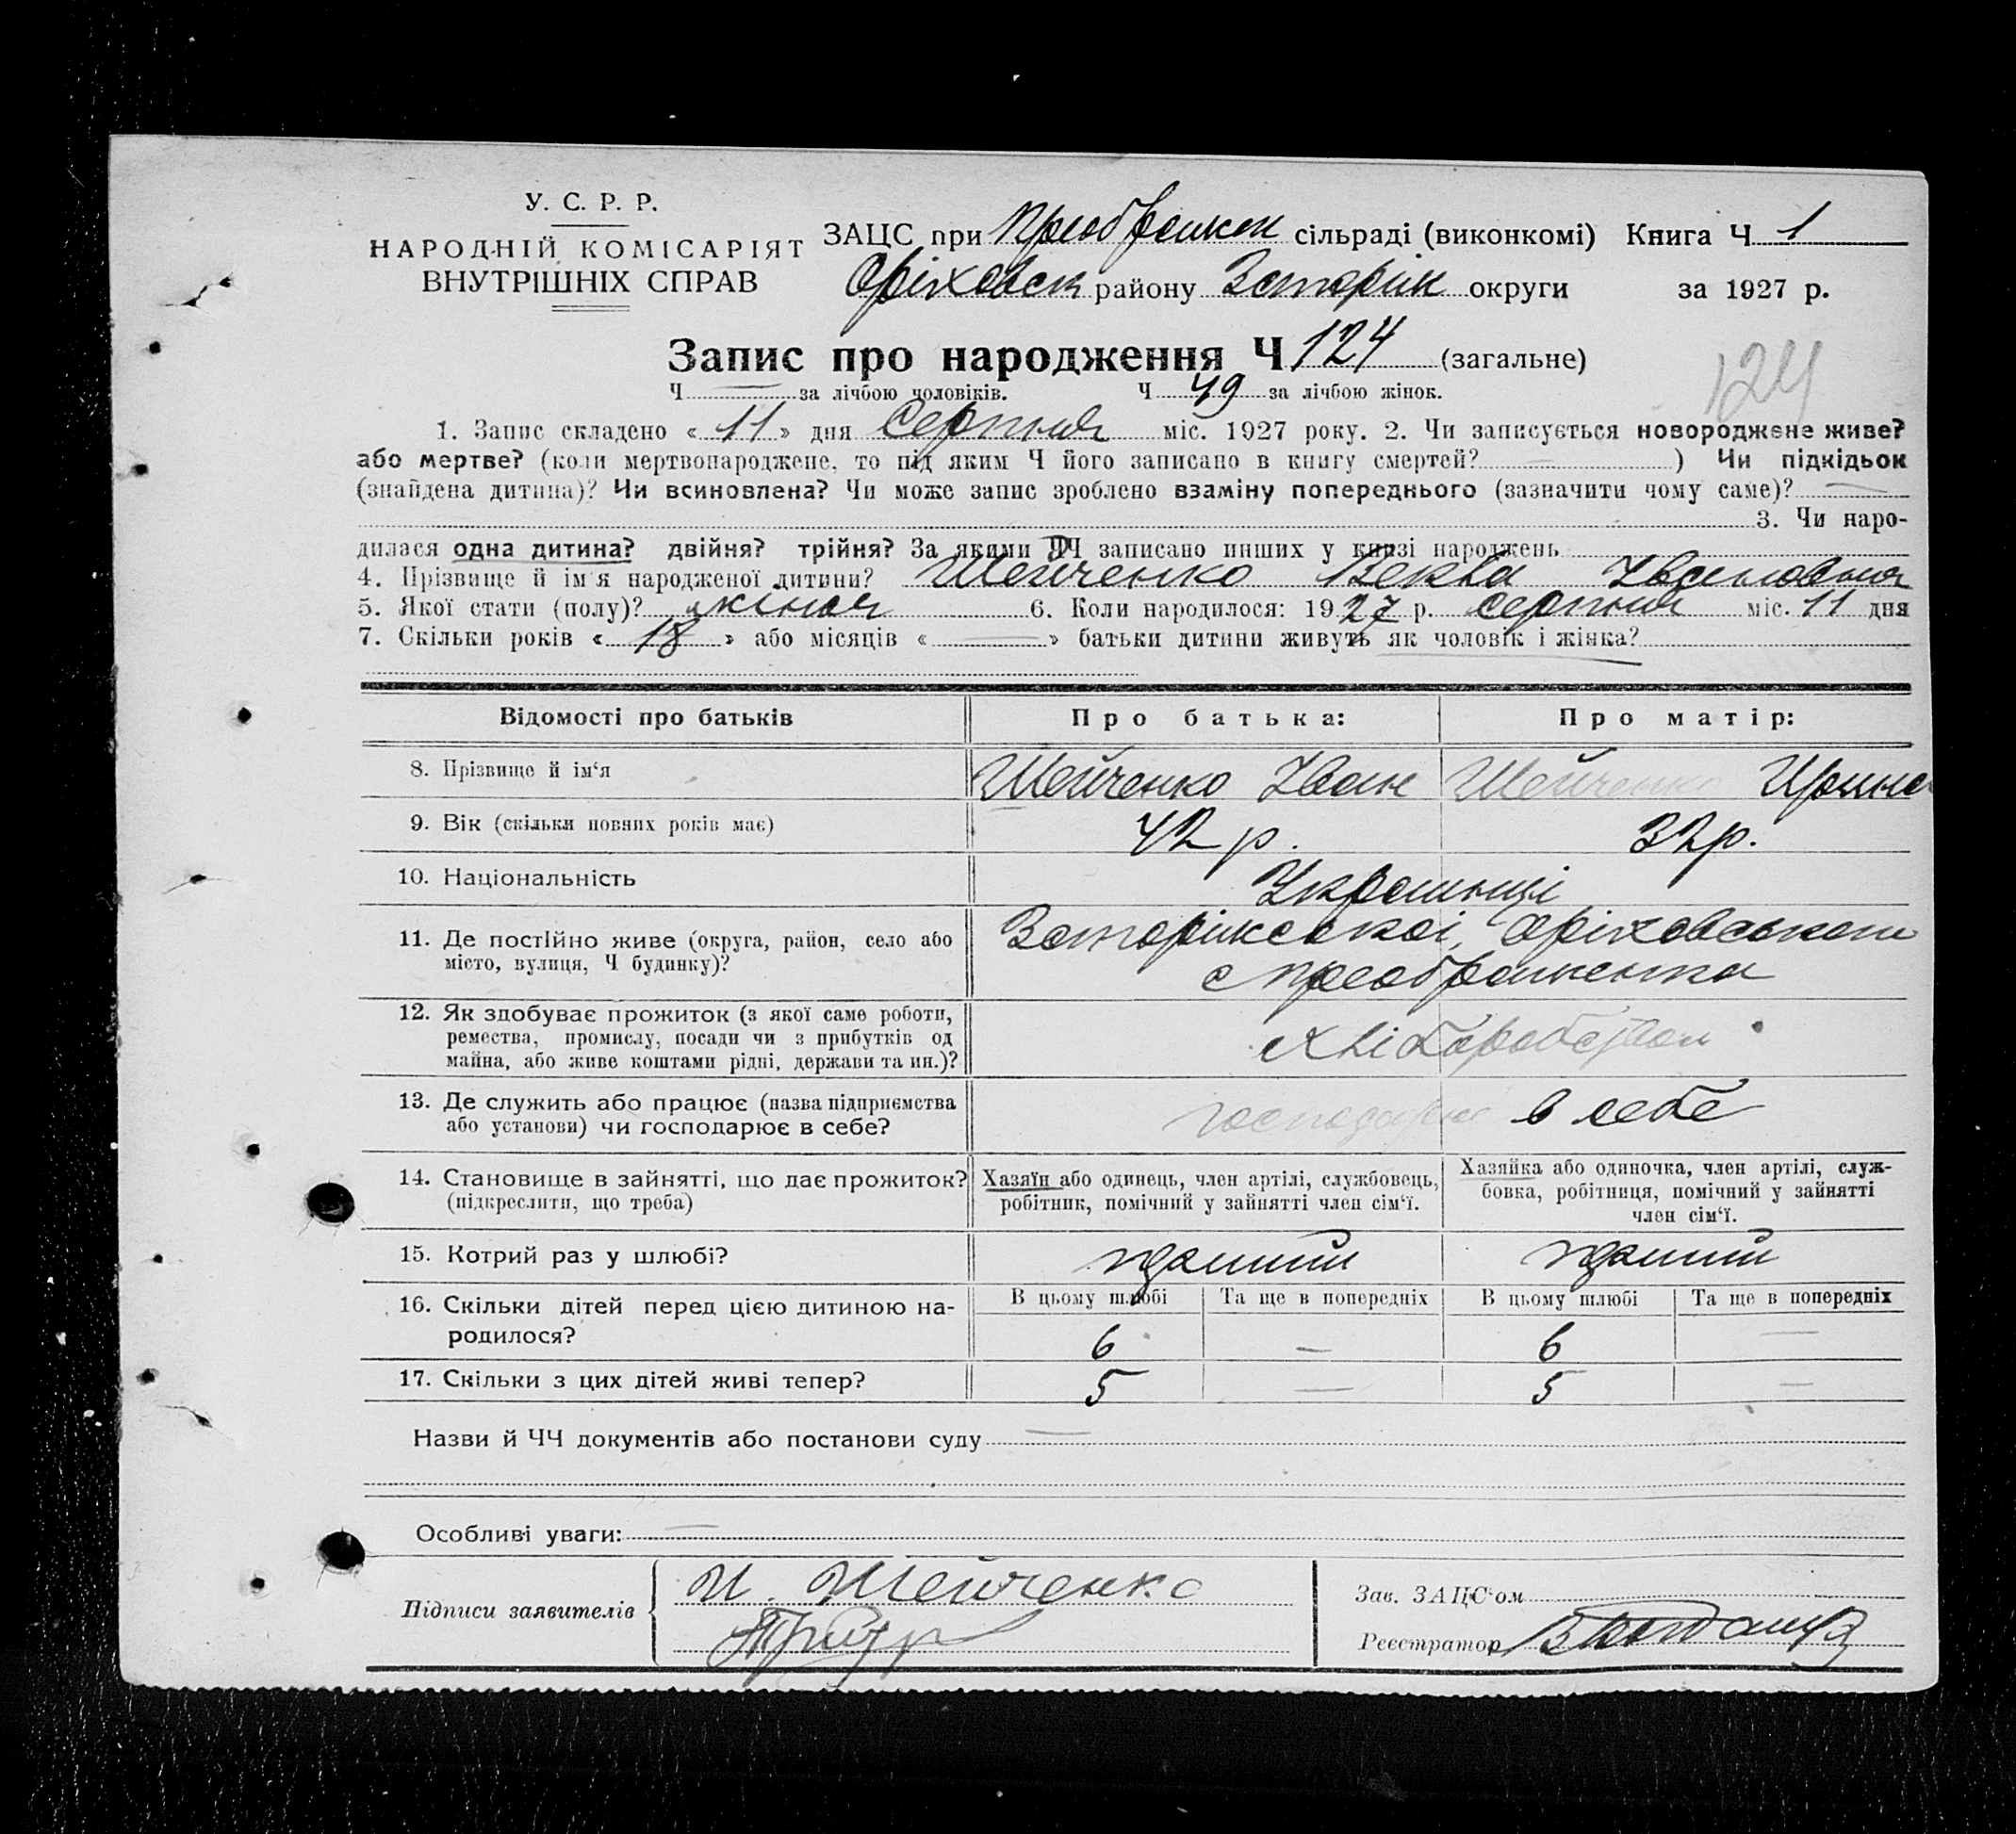 У. С. Р. Р.
НАРОДНІЙ КОМІСАРІЯТ
ВНУТРІШНІХ СПРАВ
ЗАЦС при Преображен сільраді (виконкомі) Книга Ч 1
Оріховськ району Запоріж округи за 1927 р.
Запис про народження Ч 124 (загальне)
124
Ч — за лічбою чоловіків. Ч 49 за лічбою жінок.
1. Запис складено « 11 » дня Серпня міс. 1927 року. 2. Чи записується новороджене живе?
або мертве? (коли мертвонароджене, то під яким Ч його записано в книгу смертей? — ) Чи підкідьок
(знайдена дитина)? Чи всиновлена? Чи може запис зроблено взаміну попереднього (зазначити чому саме)? —
3. Чи наро-
дилася одна дитина? двійня? трійня? За якими ЧЧ записано инших у книзі народжень
4. Прізвище й ім'я народженої дитини? Шейченко Івановна
5. Якої стати (полу)? жіноч 6. Коли народилося: 1927 р. серпня міс. 11 дня
7. Скільки років « 18 » або місяців « — » батьки дитини живуть як чоловік і жінка?
Відомості про батьків Про батька: Про матір:
8. Прізвище й ім'я Шейченко Іван Шейченко Ирина
9. Вік (скільки повних років має) 42 р. 32 р.
10. Національність Українці
11. Де постійно живе (округа, район, село або
місто, вулиця, Ч будинку)?
Запоріжської, Оріховського
с Преображенка
12. Як здобуває прожиток (з якої саме роботи,
ремества, промислу, посади чи з прибутків од
майна, або живе коштами рідні, держави та ин.)?
хліборобством
13. Де служить або працює (назва підприємства
або установи) чи господарює в себе?
господарює в себе
14. Становище в зайнятті, що дає прожиток?
(підкреслити, що треба)
Хазяїн або одинець, член артілі, службовець,
робітник, помічний у зайнятті член сім'ї.
Хазяйка або одиночка, член артілі, служ-
бовка, робітниця, помічний у зайнятті
член сім'ї.
15. Котрий раз у шлюбі?
16. Скільки дітей перед цією дитиною на-
родилося?
В цьому шлюбі Та ще в попередніх В цьому шлюбі Та ще в попередніх
6 — 6 —
17. Скільки з цих дітей живі тепер? 5 — 5 —
Назви й ЧЧ документів або постанови суду —
Особливі уваги: —
Підписи заявителів И. Шейченко
Зав. ЗАЦС'ом
Реєстратор